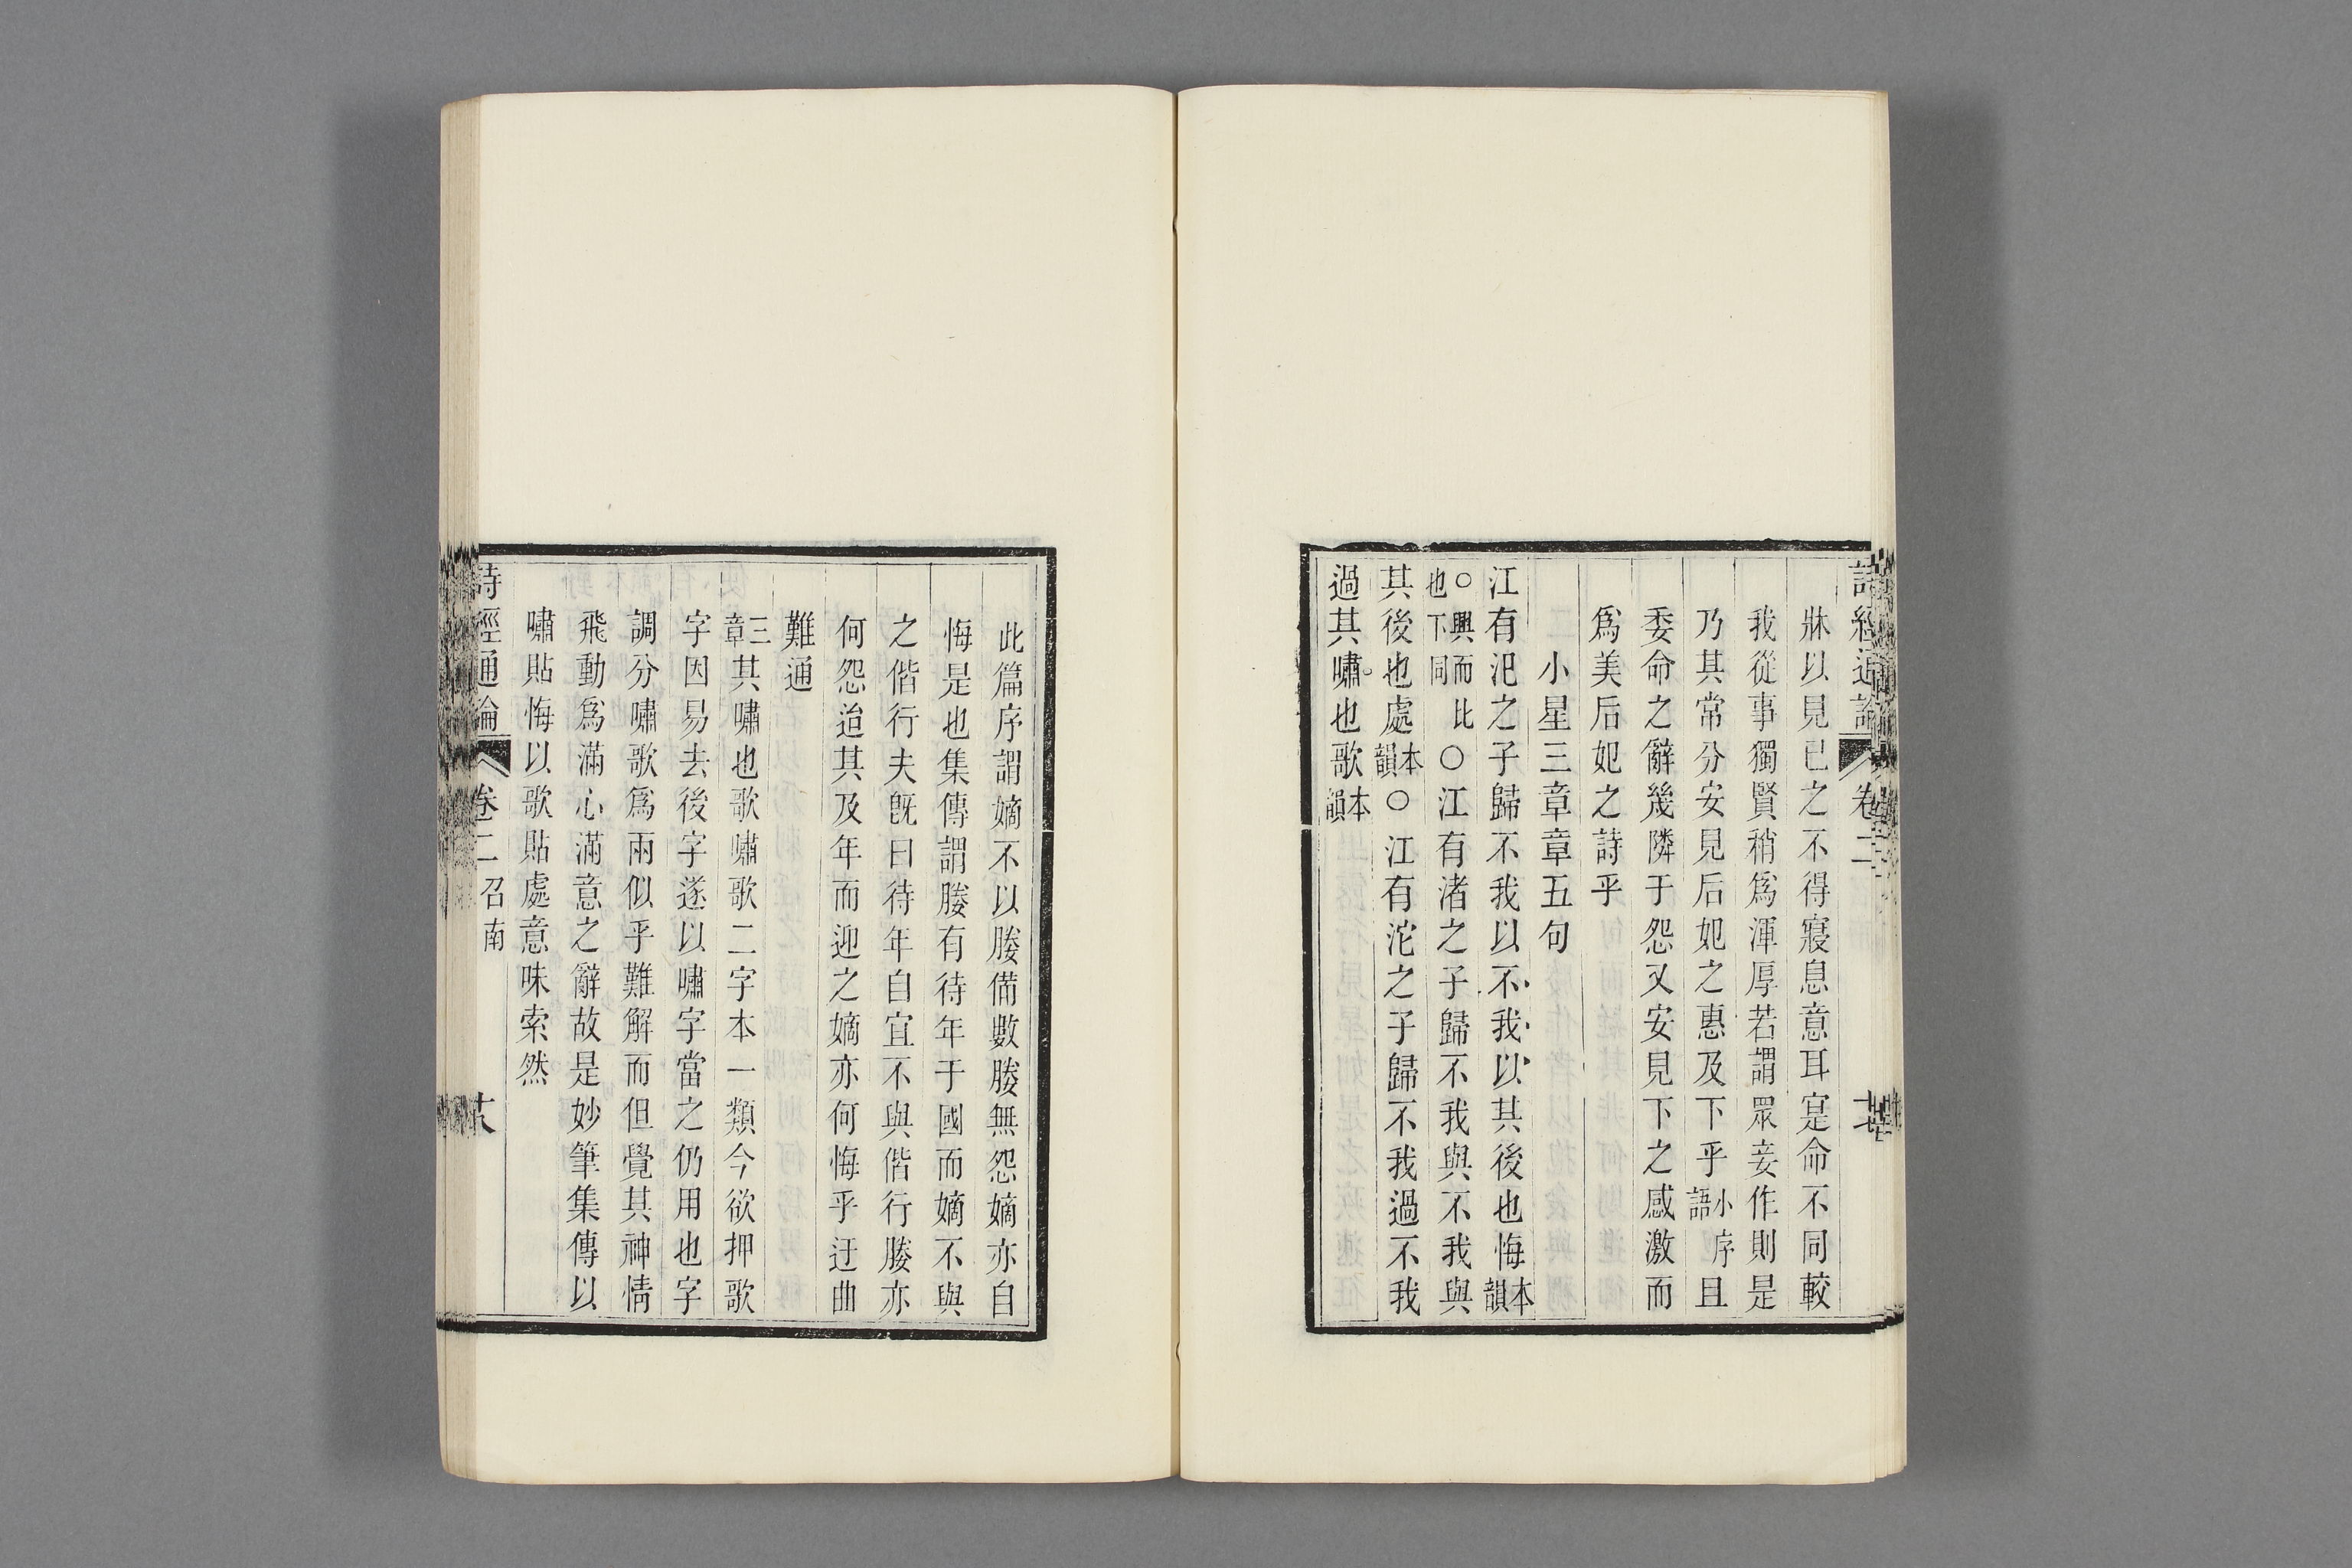 詩經通論 卷二
牀以見已之不得寢息意耳寔命不同較
我從事獨賢稍爲渾厚若謂眾妾作則是
乃其常分安見后妃之惠及下乎小序語且
委命之辭幾隣于怨又安見下之感激而
爲美后妃之詩乎
小星三章章五句
江有汜之子歸不我以不我以其後也悔本韻
○興而比也下同○江有渚之子歸不我與不我與
其後也處本韻○江有沱之子歸不我過不我
過其嘯也歌本韻
此篇序謂嫡不以媵備數媵無怨嫡亦自
悔是也集傳謂媵有待年于國而嫡不與
之偕行夫旣曰待年自宜不與偕行媵亦
何怨迨其及年而迎之嫡亦何悔乎迂曲
難通
三章其嘯也歌嘯歌二字本一類今欲押歌
字因易去後字遂以嘯字當之仍用也字
調分嘯歌爲兩似乎難解而但覺其神情
飛動爲滿心滿意之辭故是妙筆集傳以
嘯貼悔以歌貼處意味索然
詩經通論 卷二 召南